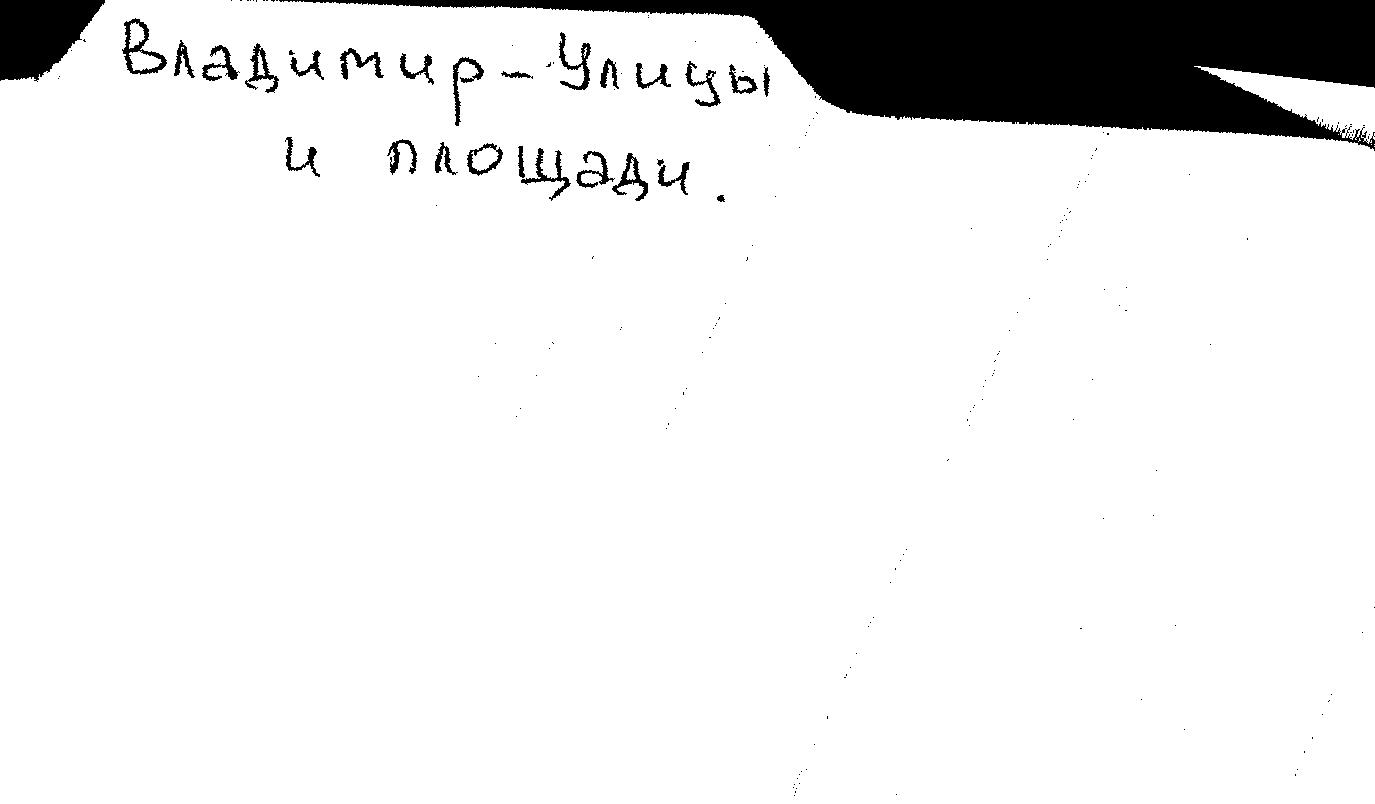 Владимир - Улицы
и площади.